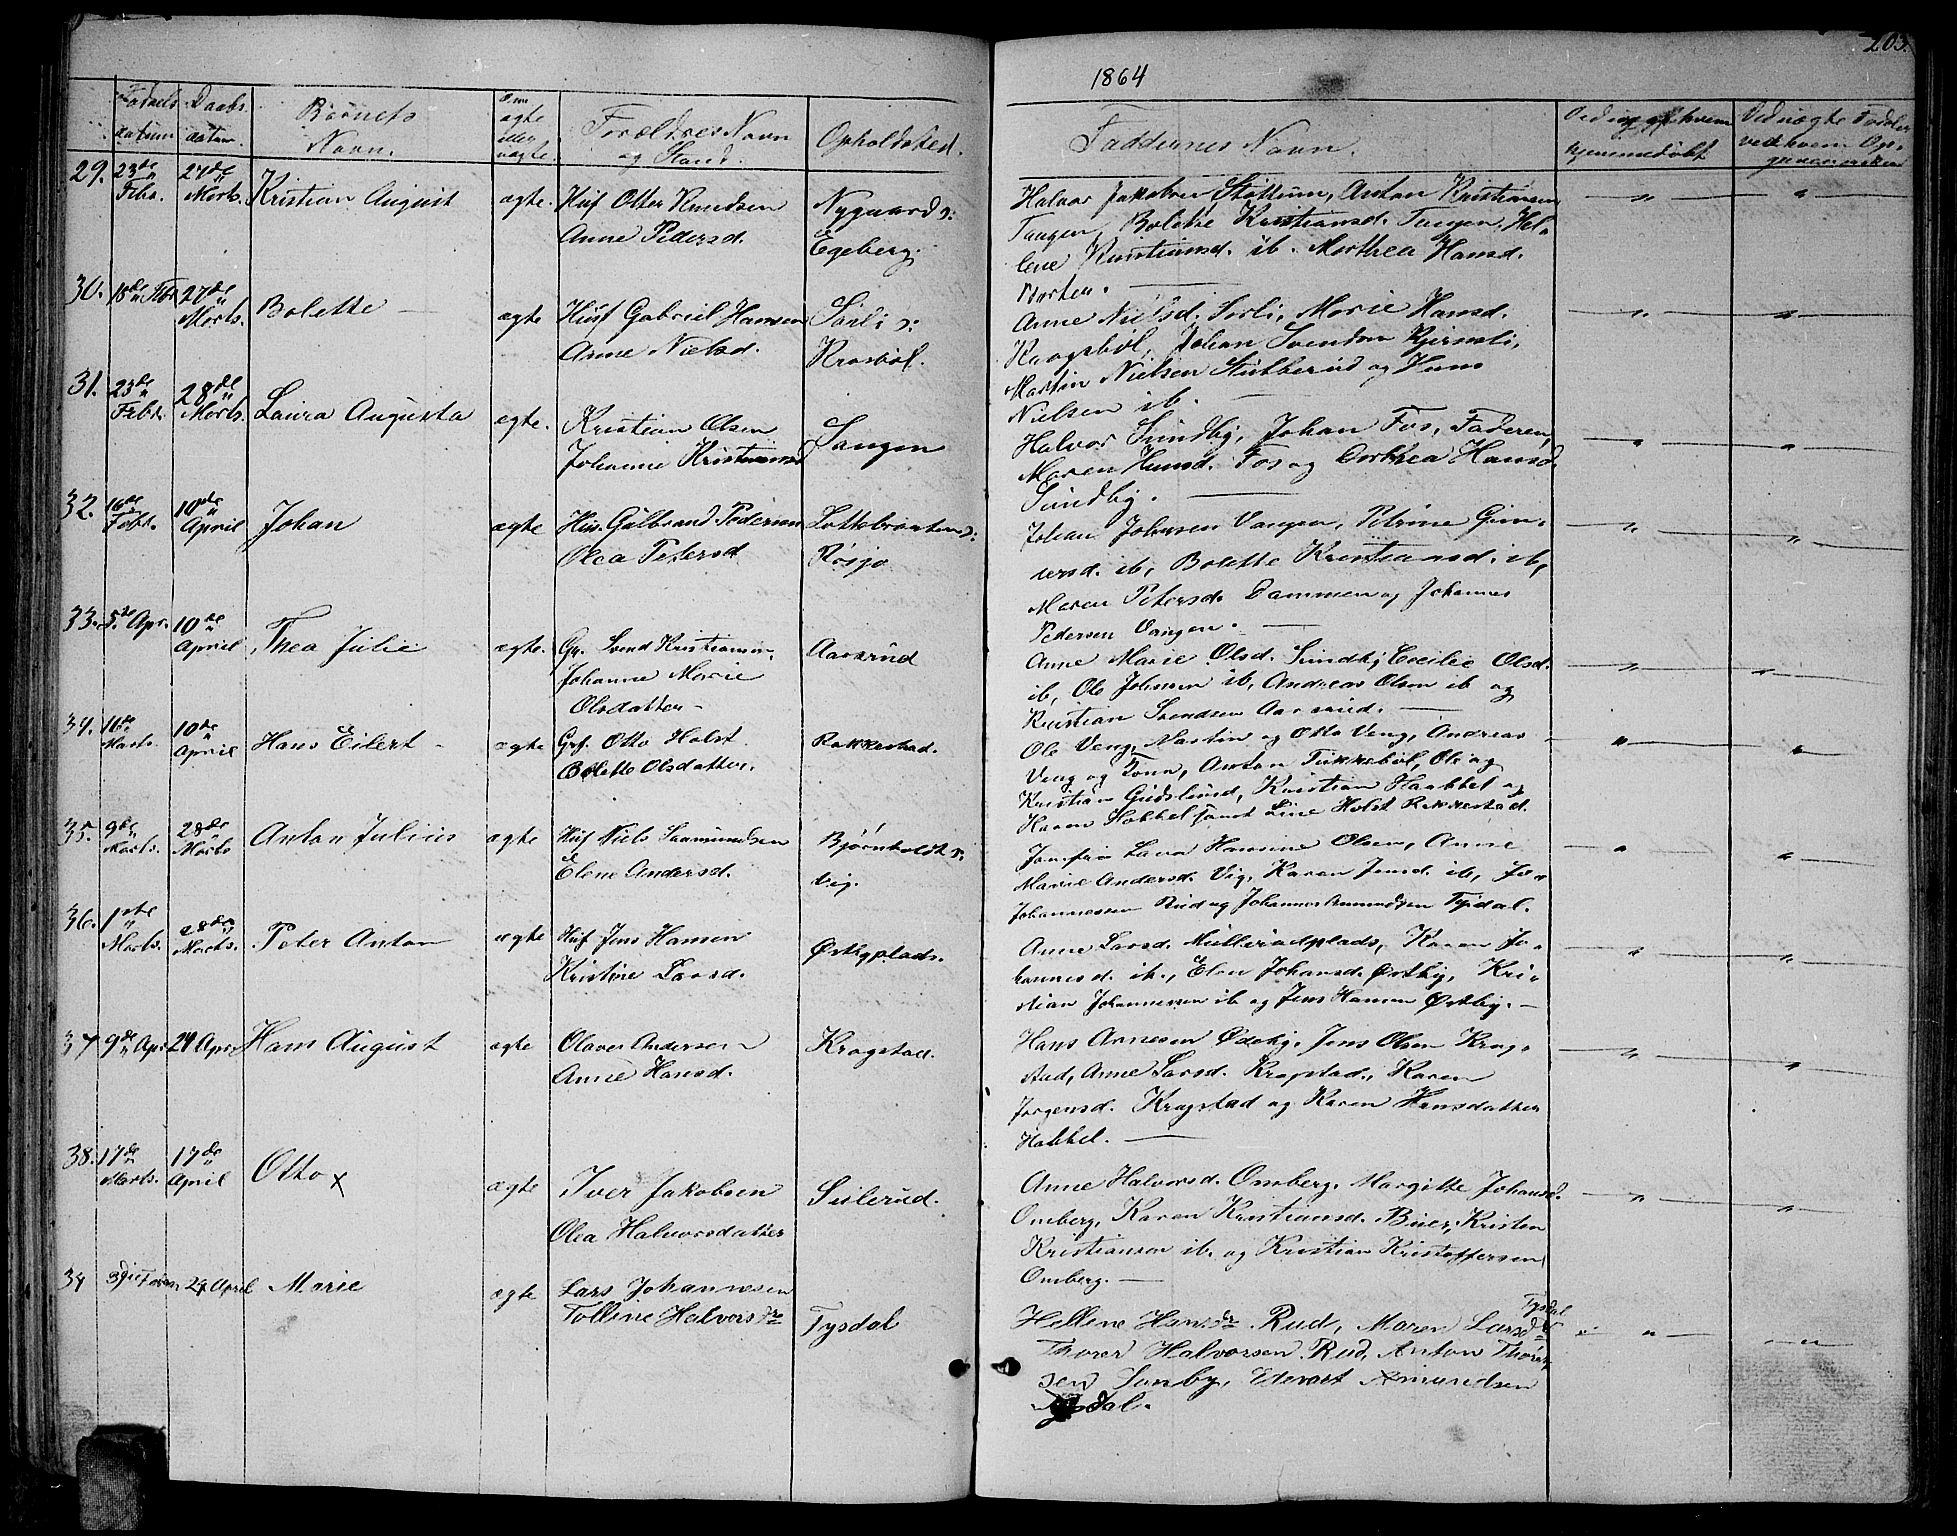 203.
1864
Fødsels datum
Daabs datum
Barnets Navn.
Om ægte eller uægte.
Forældres Navn og Stand.
Opholdsted.
Faddernes Navn.
29. 23de Febr. 27de Marts. Kristian August ægte. Huf Otter Knudsen Nygaard s:
Anne Pedersd. Egeberg.
Halvor Jakobsen Stikkum, Anton Kristiansen
Tangen, Bolette Kristiansd. Tangen, Hel-
lene Kristiansd. ib. Marthea Hansd.
Braten.
30. 18de Febr 27de Marts. Bolette ægte Husf Gabriel Hansen Sørli s:
Anne Nielsd. Krosbøl.
Anne Nielsd. Sørli, Marie Hansd.
Krogsbøl, Johan Svendsen Kjernsli,
Martin Nielsen Stulberud og Hans
Nielsen ib.
31. 23de Febr. 28de Marts. Laura Augusta ægte. Kristian Olsen Tangen
Johanne Kristiansd
Halvor Sundby, Johan Fos, Faderen,
Maren Hansd. Fos og Dorthea Hansd.
Sundby.
32. 16de Febr. 10de April Johan ægte Hus. Gulbrand Pedersen Lottebraaten s:
Olea Petersd Røsjø
Johan Johnsen Vangen, Petrine Gun-
dersd. ib, Bolette Kristiansd. ib,
Maren Petersd. Dammen og Johannes
Pedersen Vangen.
33. 5te Apr. 10de April Thea Julie ægte. Gr. Svend Kristiansen Aarsrud
Johanne Marie
Olsdatter
Anne Marie Olsd. Sundby Cecilie Olsd.
ib, Ole Johnsen ib, Andreas Olsen ib og
Kristian Svendsen Aarsrud.
34. 16de Marts. 10de April Hans Eilert ægte Grf. Otto Holst Rakkestad.
Bolette Olsdatter.
Ole Veng, Martin og Otto Veng, Andreas
Veng og Tona, Anton Tukkebøl, Ole og
Kristian Gudslund, Kristian Haakkel og
Karen Hobbel samt Line Holst Rakkestad.
35. 9de Marts. 28de Marts Anton Julius ægte Huf Niels Saamundsen Bjørnholdt s:
Elene Andersd. Vig.
Jomfru Lava Hansine Olsen, Anne
Marie Andersd. Vig, Karen Jensd. ib, Jo-
Johannessen Rud og Johannes Amundsen Tysdal.
36. 1ste Marts. 28de Marts. Peter Anton ægte Huf Jens Hansen Østbyplads.
Kristine Larsd.
Anne Larsd. Mullerudplads, Karen Jo-
hannesd. ib., Elen Johansd. Østby, Kri-
stian Johannessen ib og Jens Hansen Østby.
37 9de Apr 24 Apr. Hans August ægte Olaves Andersen Kragstad.
Anne Hansd.
Hans Arnesen Ødeby, Jens Olsen Krag-
stad, Anne Larsd. Kragstad, Karen
Jørgensd. Kragstad og Karen Hansdatter
Hobbel.
38. 17de Marts. 17de April Otto x ægte Iver Jakobsen Sulerud.
Olea Halvorsdatter
Anne Halvorsd. Omberg, Margitte Johansd.
Omberg, Karen Kristiansd. Buer, Kristen
Kristiansen ib. og Kristian Kristoffersen
Omberg.
39 24 April Marie ægte Lars Johannesen Tysdal
Tolline Halvorsdr
Hellene Hansdr Rud, Maren Larsdr Tysdal
Thorer Halvorsen Rud, Anton Thorer
sen Sunby, Edevart Amundsen
Tysdal.